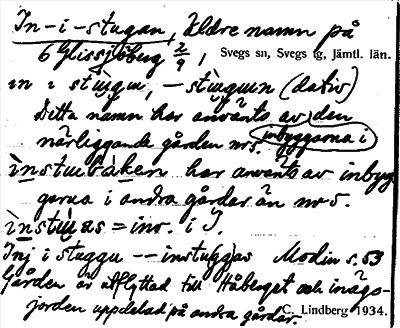 In-i-stugan, Äldre namn på
6 Glissjöberg 2/9, Svegs sn, Svegs tg, Jämtl. län.
ın ı stu̇gu, -stuguın (dativ)
Detta namn har använts av den
närliggande gården nr 5. inbyggarna i
ı̀nstubàken har använts av inbyg-
garna i andra gårdar än nr 5.
ı̀nstuas = inv. i I.
Inj i stuggu -- instuggas Modin s. 53
Gården är utflyttad till Håberget och inägo-
jorden uppdelad på andra gårdar
C. Lindberg 1934.